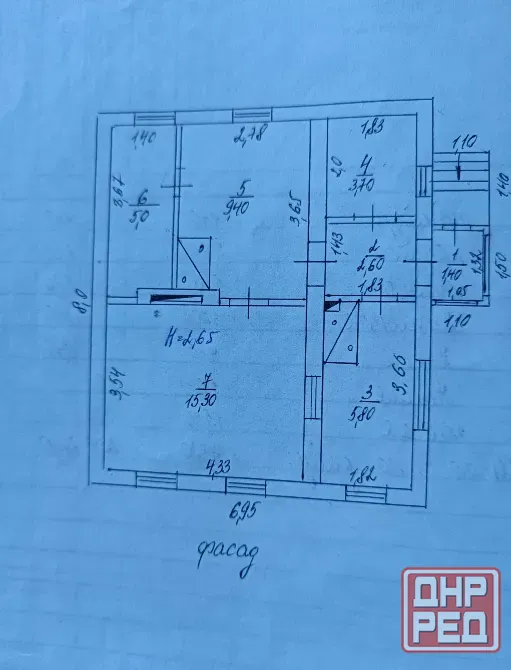 1,40
2,78
1,83
1,10
3,67
6
5,0
5
9,40
3,65
2,0
4
3,70
1,40
1,43
2
2,60
1,83
1
1,40
1,32
1,50
1,05
1,10
8,0
H=2,65
3,54
7
15,30
3
5,80
3,65
4,33
1,82
6,95
фасад
ДНР
РЕД